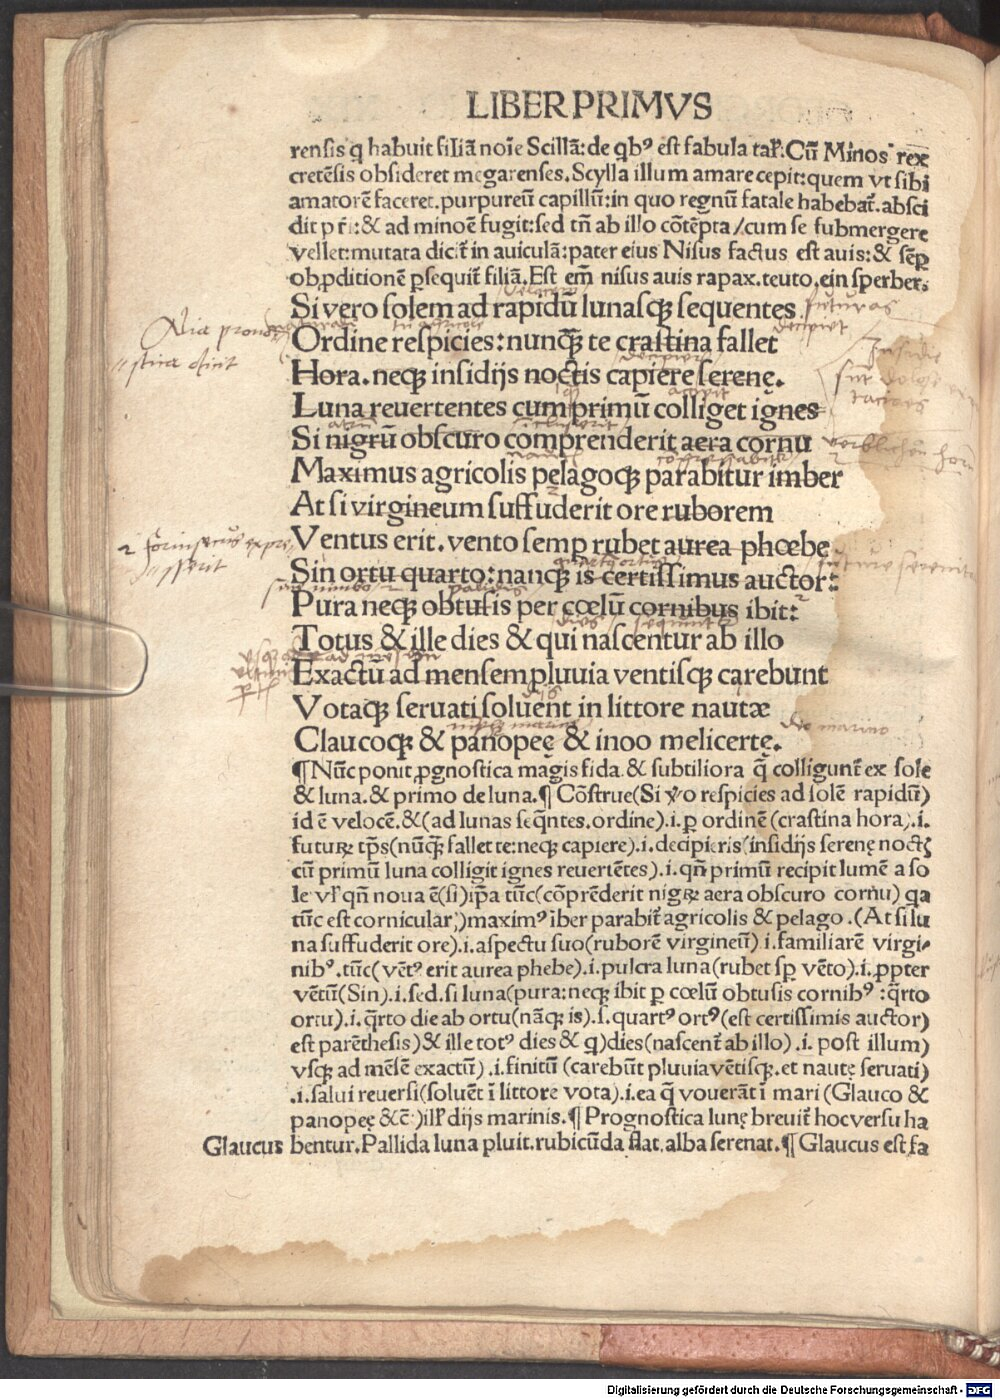 LIBER PRIMVS
rensis q habuit filiā noīe Scillā: de qbꝰ est fabula tał. Cū Minos rex
cretēsis obsideret megarenses. Scylla illum amare cepit: quem vt sibi
amatorē faceret. purpureū capillū: in quo regnū fatale habebat̄. absci
dit p r̄i: & ad minoē fugit: sed tn̄ ab illo cōtēpta / cum se submergere
vellet: mutata dicit̄ in auiculā: pater eius Nisus factus est auis: & sēꝑ
ob ꝓditionē ꝑsequit̄ filiā. Est em̄ nisus auis rapax. teuto, ein sperber.
Si vero solem ad rapidū lunasqꝫ sequentes
futuras
Alia prono
Ordine respicies: nunqꝫ te crastina fallet
stica dicit
Hora. neqꝫ insidijs noctis capiere serenę.
Luna reuertentes cum primū colliget ignes
Si nigrū obscuro comprenderit aera cornu
Maximus agricolis pelagoqꝫ parabitur imber
At si virgineum suffuderit ore ruborem
Ventus erit. vento semꝑ rubet aurea phœbe
Sin ortu quarto: nanqꝫ is certissimus auctor:
Pura neqꝫ obtusis per cœlū cornibus ibit:
Totus & ille dies & qui nascentur ab illo
Exactū ad mensem pluuia ventisqꝫ carebunt
Votaqꝫ seruati soluent in littore nautæ
deo marino
Claucoqꝫ & panopeę & inoo melicertę.
¶ Nūc ponit ꝓgnostica magis fida & subtiliora q̄ colligunt̄ ex sole
& luna. & primo de luna. ¶ Cōstrue (Si v̊o respicies ad solē rapidū)
id ē velocē. & (ad lunas seq̄ntes. ordine). i. ꝑ ordinē (crastina hora). i.
futurꝝ tp̄s (nūqꝫ fallet te: neqꝫ capiere). i. decipieris (insidijs serenę noctꝭ
cū primū luna colligit ignes reuertētes). i. qn̄ primū recipit lumē a so
le vł qn̄ noua ē (si) ip̄a tūc (cōprēderit nigrꝝ aera obscuro cornu) qa
tūc est cornicular,) maximꝰ īber parabit̄ agricolis & pelago. (At si lu
na suffuderit ore). i. aspectu suo (ruborē virgineū) i. familiarē virgi-
nibꝰ. tūc (vētꝰ erit aurea phebe). i. pulcra luna (rubet sꝑ vēto). i. ꝓpter
vētū (Sin). i. sed. si luna (pura: neqꝫ ibit ꝑ cœlū obtusis cornibꝰ: q̄rto
ortu). i. q̄rto die ab ortu (nāqꝫ is). s. quartꝰ ortꝰ (est certissimis auctor)
est parēthesis) & ille totꝰ dies & q) dies (nascent̄ ab illo). i. post illum)
vsqꝫ ad mēsē exactū). i. finitū (carebūt pluuia vētisqꝫ. et nautę seruati)
.i. salui reuersi (soluēt ī littore vota). i. ea q̄ vouerāt ī mari (Glauco &
panopeę &c̄) ill' dijs marinis. ¶ Prognostica lunę breuit̄ hoc versu ha
Glaucus bentur. Pallida luna pluit. rubicūda flat. alba serenat. ¶ Glaucus est fa
Digitalisierung gefördert durch die Deutsche Forschungsgemeinschaft - DFG